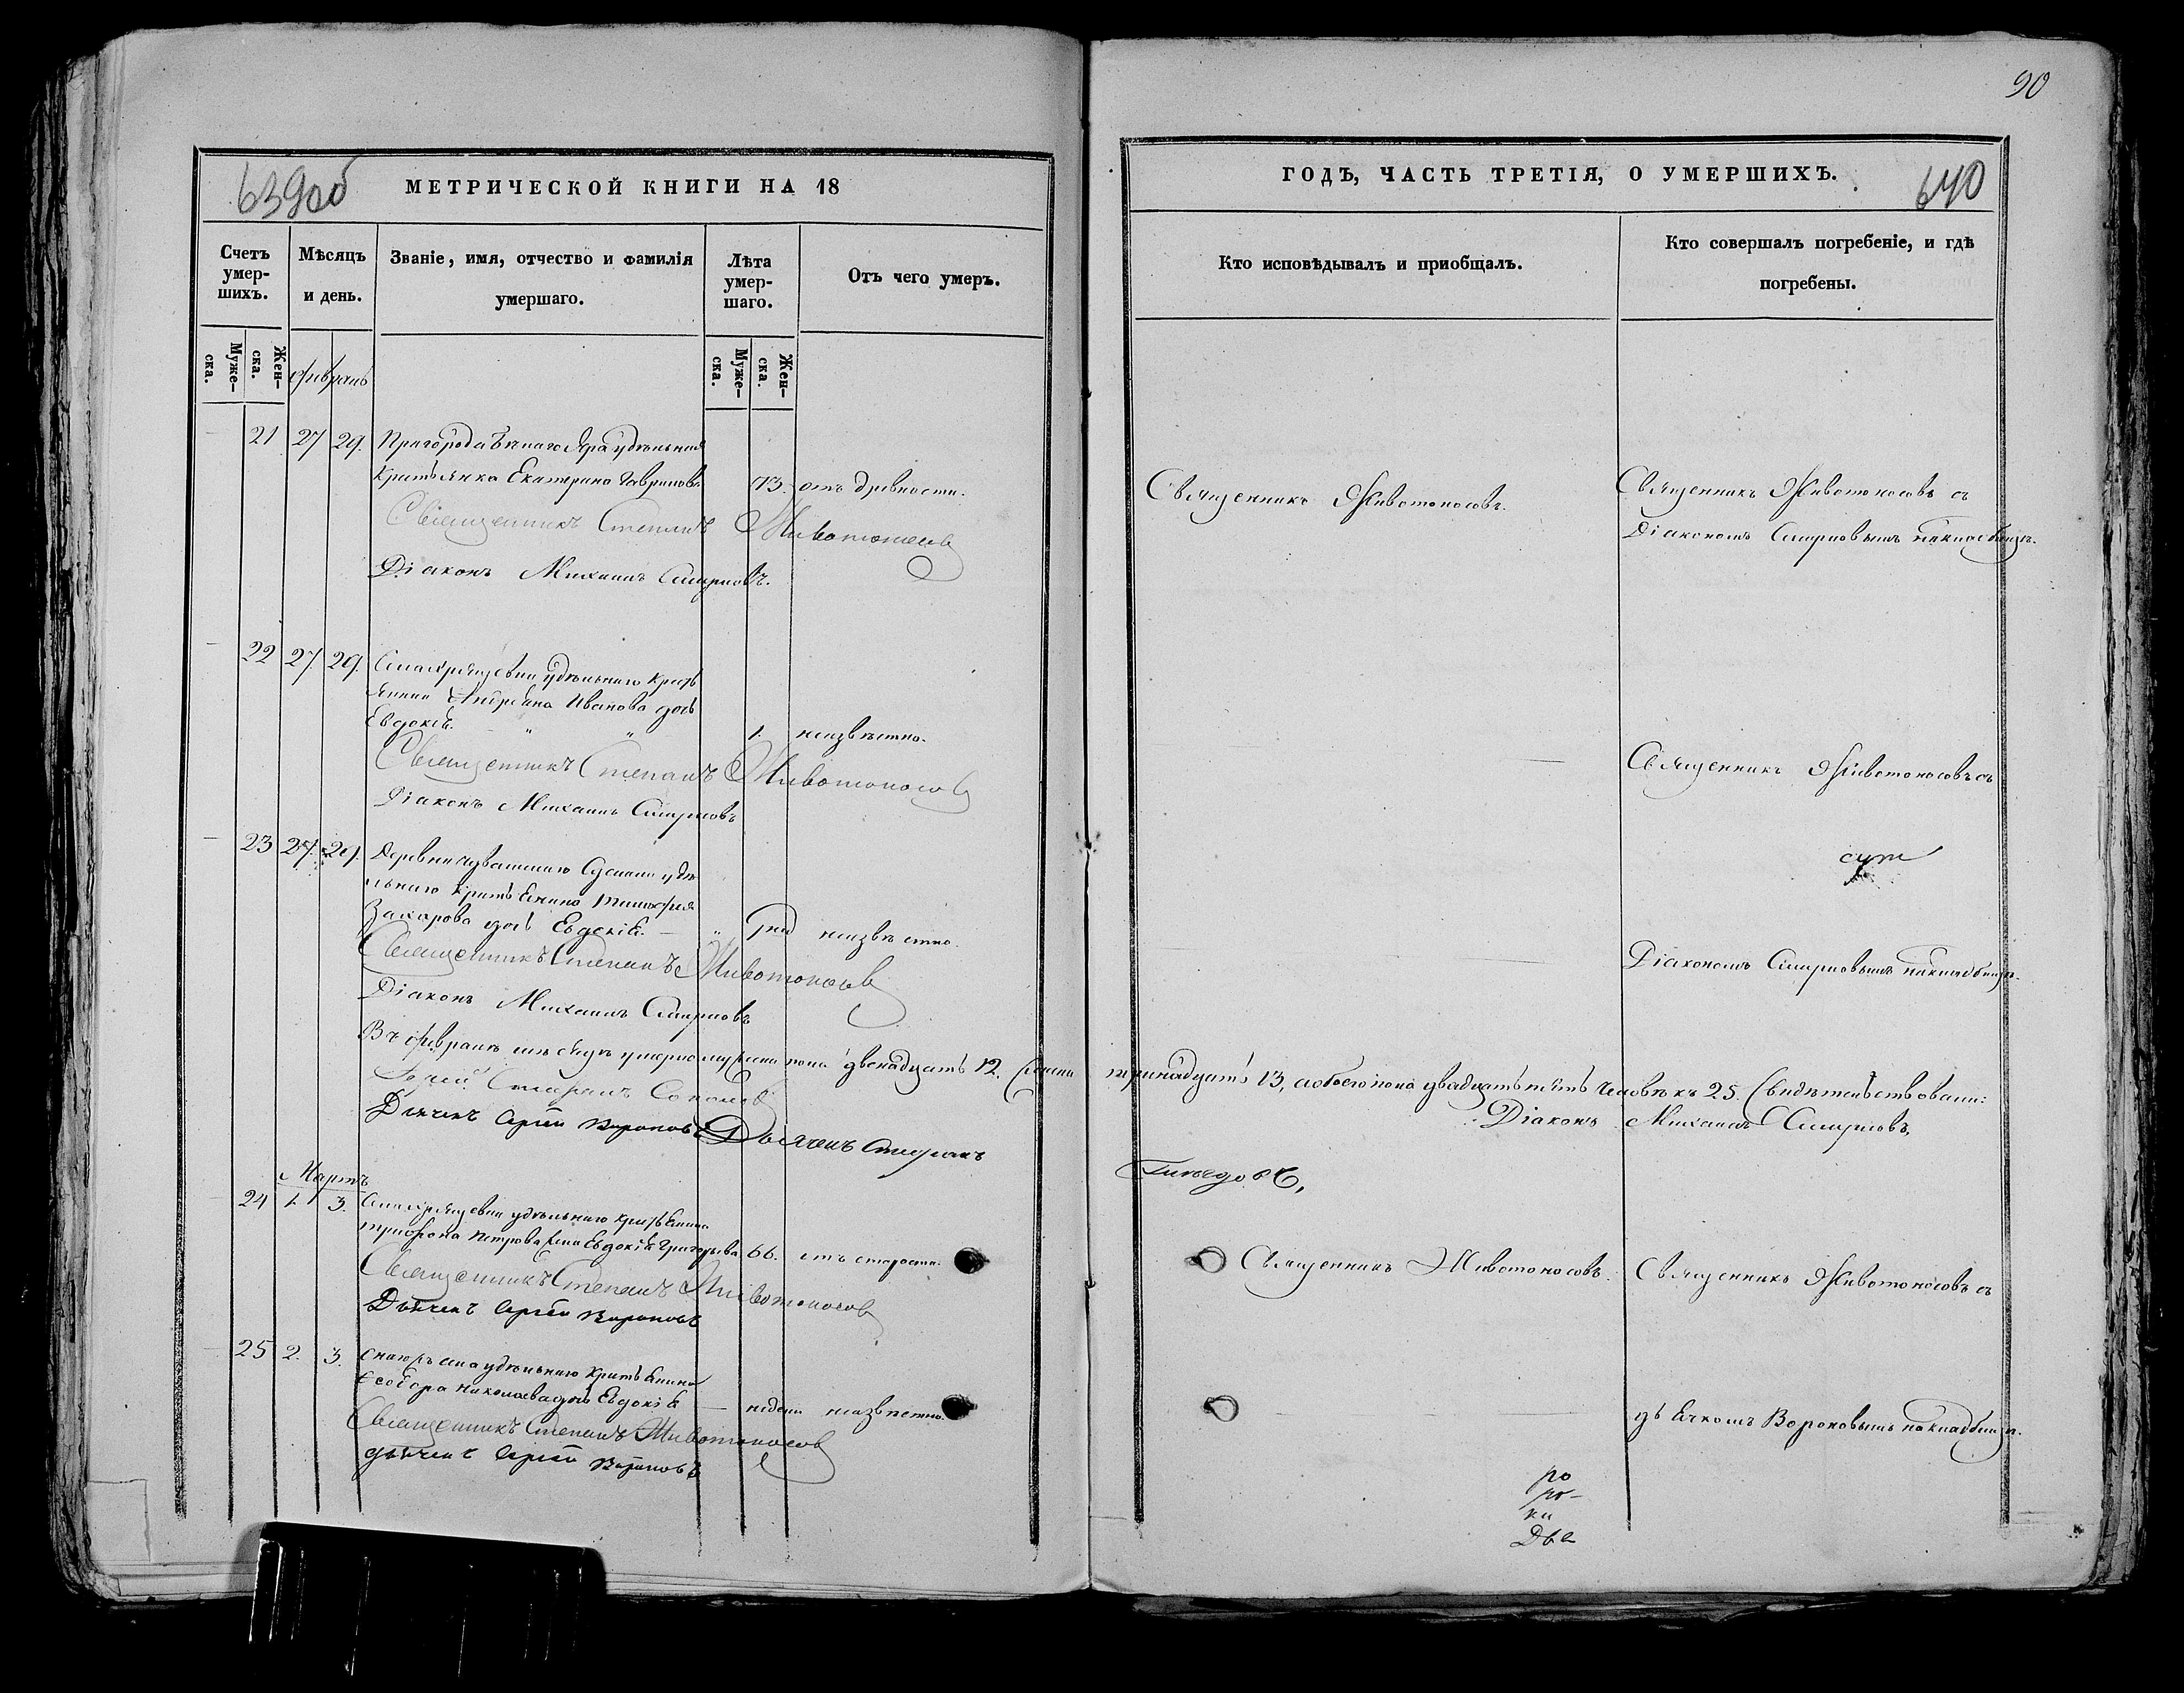 90
639 об
МЕТРИЧЕСКОЙ КНИГИ НА 18
ГОДЪ, ЧАСТЬ ТРЕТІЯ, О УМЕРШИХЪ.
640
Счетъ умер-шихъ.
Мѣсяцъ и день.
Званіе, имя, отчество и фамилія умершаго.
Лѣта умер-шаго.
Отъ чего умеръ.
Кто исповѣдывалъ и приобщалъ.
Кто совершалъ погребеніе, и гдѣ погребены.
Муже-ска.
Жен-ска.
Муже-ска.
Жен-ска.
Февраль
21 27 29. Пригорода Бѣлаго Яра удѣльная
Крестьянка Екатерина Гаврилова 73. отъ древности.
Священникъ Животоносовъ.
Священникъ Животоносовъ съ
Священникъ Степанъ Животоносов
Діакономъ Смирновымъ на кладбищѣ.
Діаконъ Михаилъ Смирновъ.
22 27. 29. удѣльнаго кресть
янина Андреяна Иванова дочь
Евдокія. 1. неизвѣстно.
Священникъ Степанъ Животоносов
Священникъ Животоносовъ съ
Діаконъ Михаилъ Смирновъ
23 27. 29. Деревни чувашскаго удѣ
льнаго крестьянина Тимофея
Захарова дочь Евдокія. неизвѣстно.
Священникъ Степанъ Животоносов
Діакономъ Смирновымъ на кладбищѣ.
Діаконъ Михаилъ Смирновъ
Въ февралѣ мѣсяцѣ умерло мужска пола двенадцать 12. женска тринадцать 13, а обоего пола двадцать пять человѣкъ 25. Свидѣтельствовали:
Діаконъ Михаилъ Смирновъ,
Дьячекъ Сергѣй Вороновъ Дьячекъ Стефанъ
Мартъ
24 1. 3. удѣльнаго крестьянина
Трифона Петрова жена Евдокія Григорьева 66. отъ старости.
Священникъ Животоносовъ.
Священникъ Животоносовъ съ
Священникъ Степанъ Животоносов
Дьячекъ Сергѣй Вороновъ
25 2. 3. удѣльнаго крестьянина
Ѳеодора Николаева дочь Евдокія недели неизвѣстно.
дьячкомъ Вороновымъ на кладбищѣ.
Священникъ Степанъ Животоносов
дьячекъ Сергѣй Вороновъ